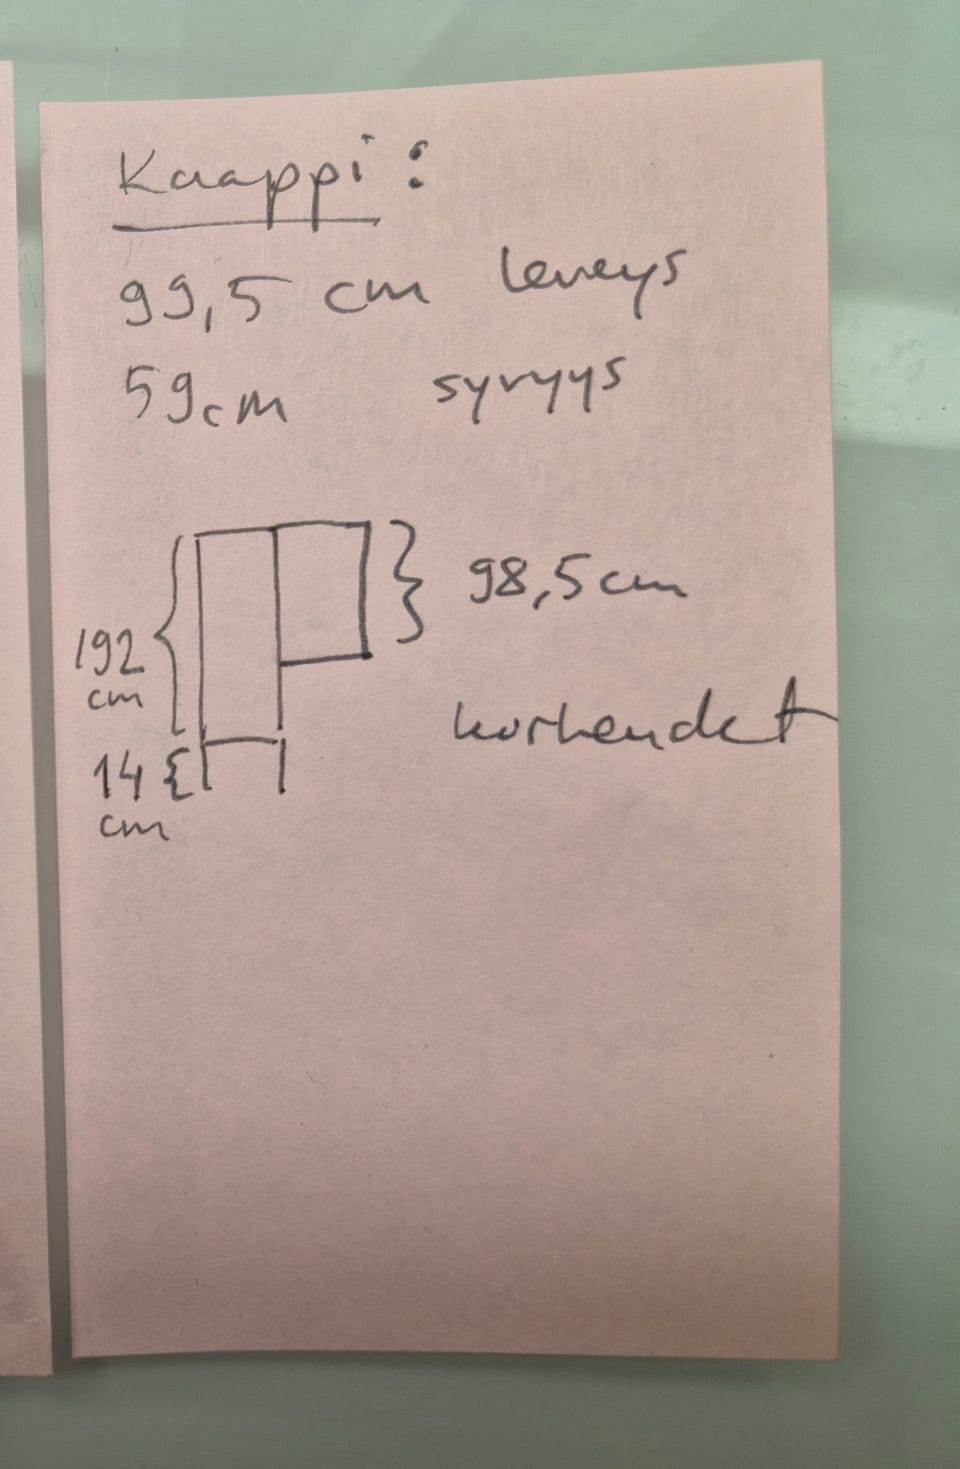 Kaappi:
99,5 cm leveys
59cm syvyys
98,5cm
192
cm
korkeudet
14
cm